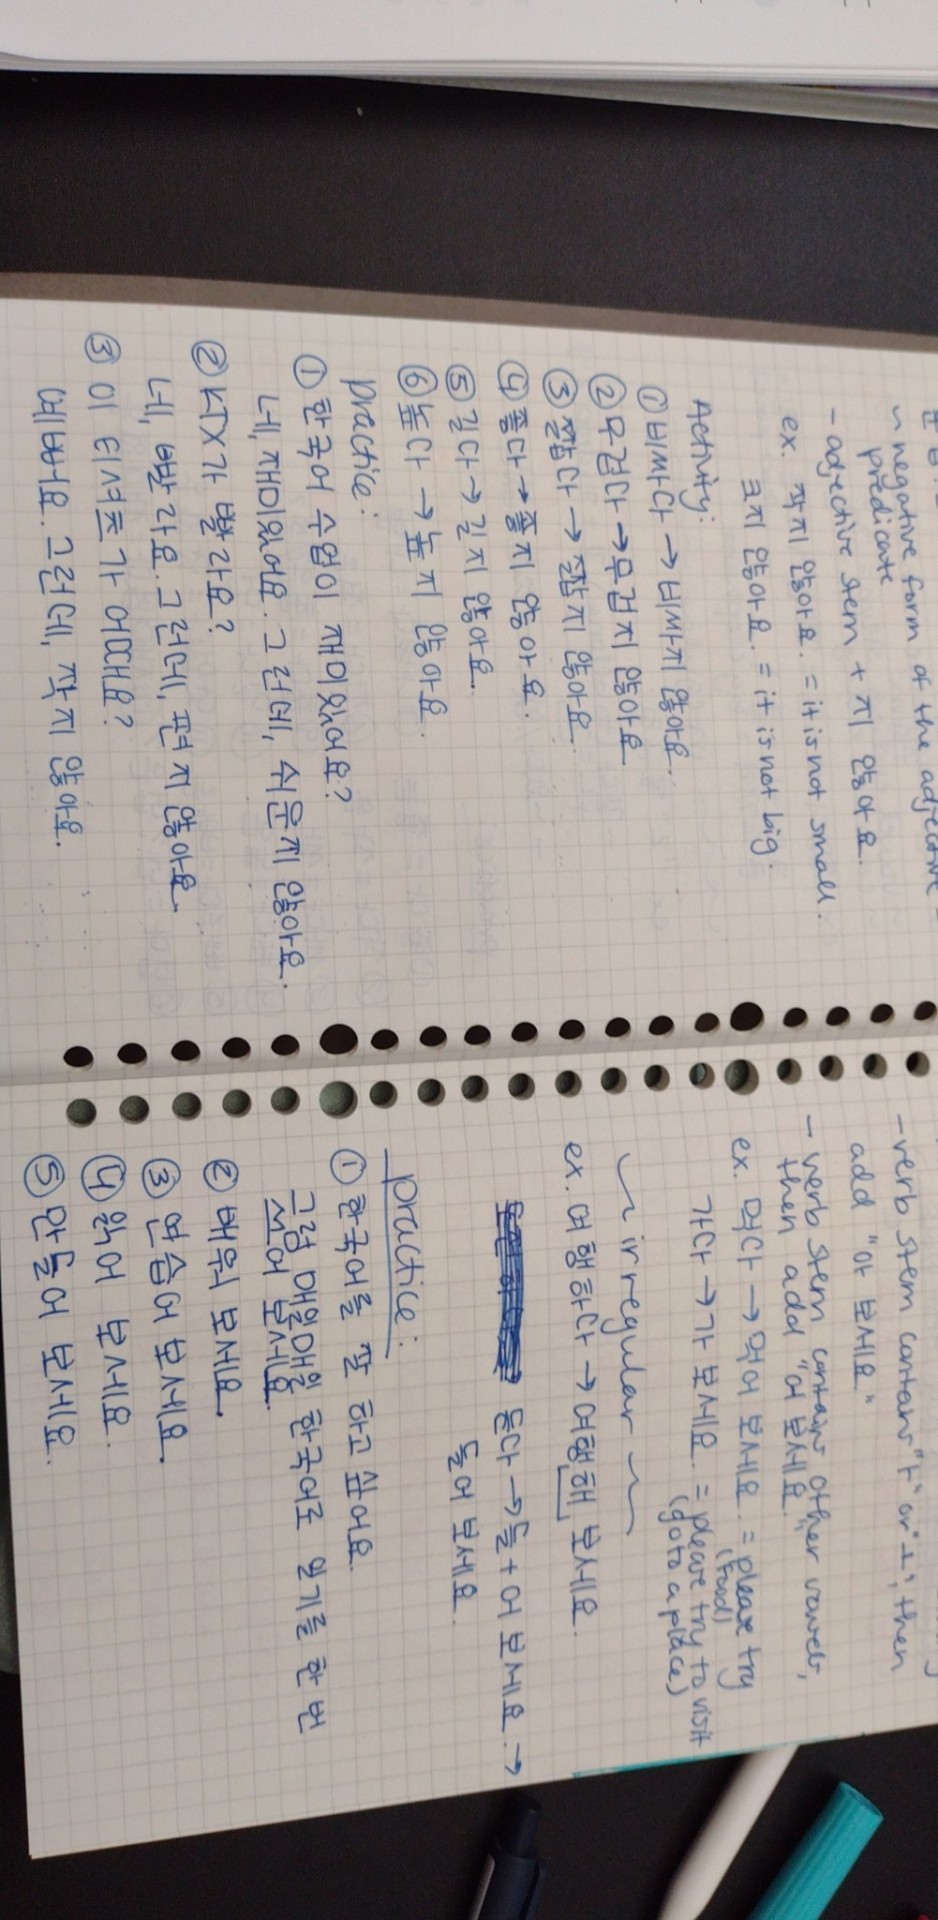 ~ negative form of the adjective
predicate
- adjective stem + 지 않아요.
ex. 작지 않아요. = it is not small.
크지 않아요. = it is not big.
Activity:
① 비싸다 → 비싸지 않아요.
② 무겁다 → 무겁지 않아요
③ 짧다 → 짧지 않아요.
④ 좋다 → 좋지 않아요.
⑤ 길다 → 길지 않아요.
⑥ 높다 → 높지 않아요.
practice:
① 한국어 수업이 재미있어요?
네, 재미있어요. 그런데, 쉬운지 않아요.
② KTX가 빨라요?
네, 빨라요. 그런데, 편지 않아요.
③ 이 티셔츠가 어때요?
예뻐요. 그런데, 작지 않아요.
-verb stem contains "ㅏ" or "ㅗ", then
add "아 보세요"
- verb stem contains other vowels,
then add "어 보세요"
ex. 먹다 → 먹어 보세요. = please try
(food)
가다 → 가 보세요. = please try to visit
(go to a place)
~ irregular ~
ex. 여행하다 → 여행해 보세요.
듣다 → 들 + 어 보세요 →
들어 보세요.
practice:
① 한국어를 잘 하고 싶어요.
그럼 매일매일 한국어로 일기를 한 번
써어 보세요.
② 배워 보세요.
③ 연습어 보세요.
④ 읽어 보세요.
⑤ 만들어 보세요.